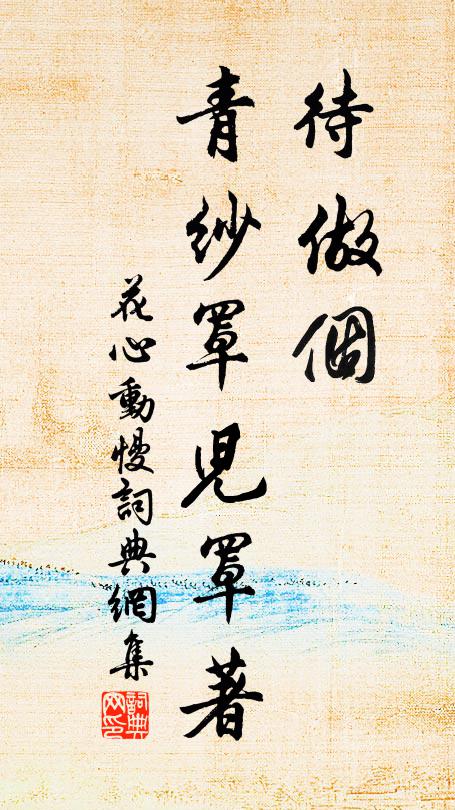 待做個
青紗罩兒罩著
花心動慢詞典網集
詞典
网印